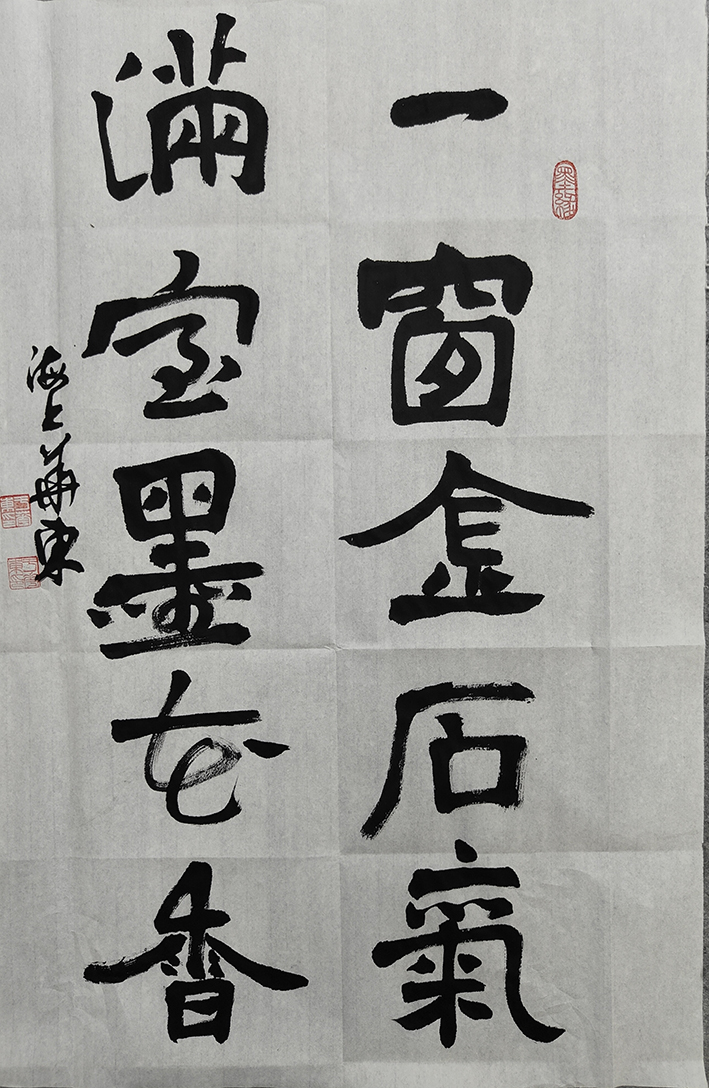 一窗金石氣
滿室墨花香
海上華東